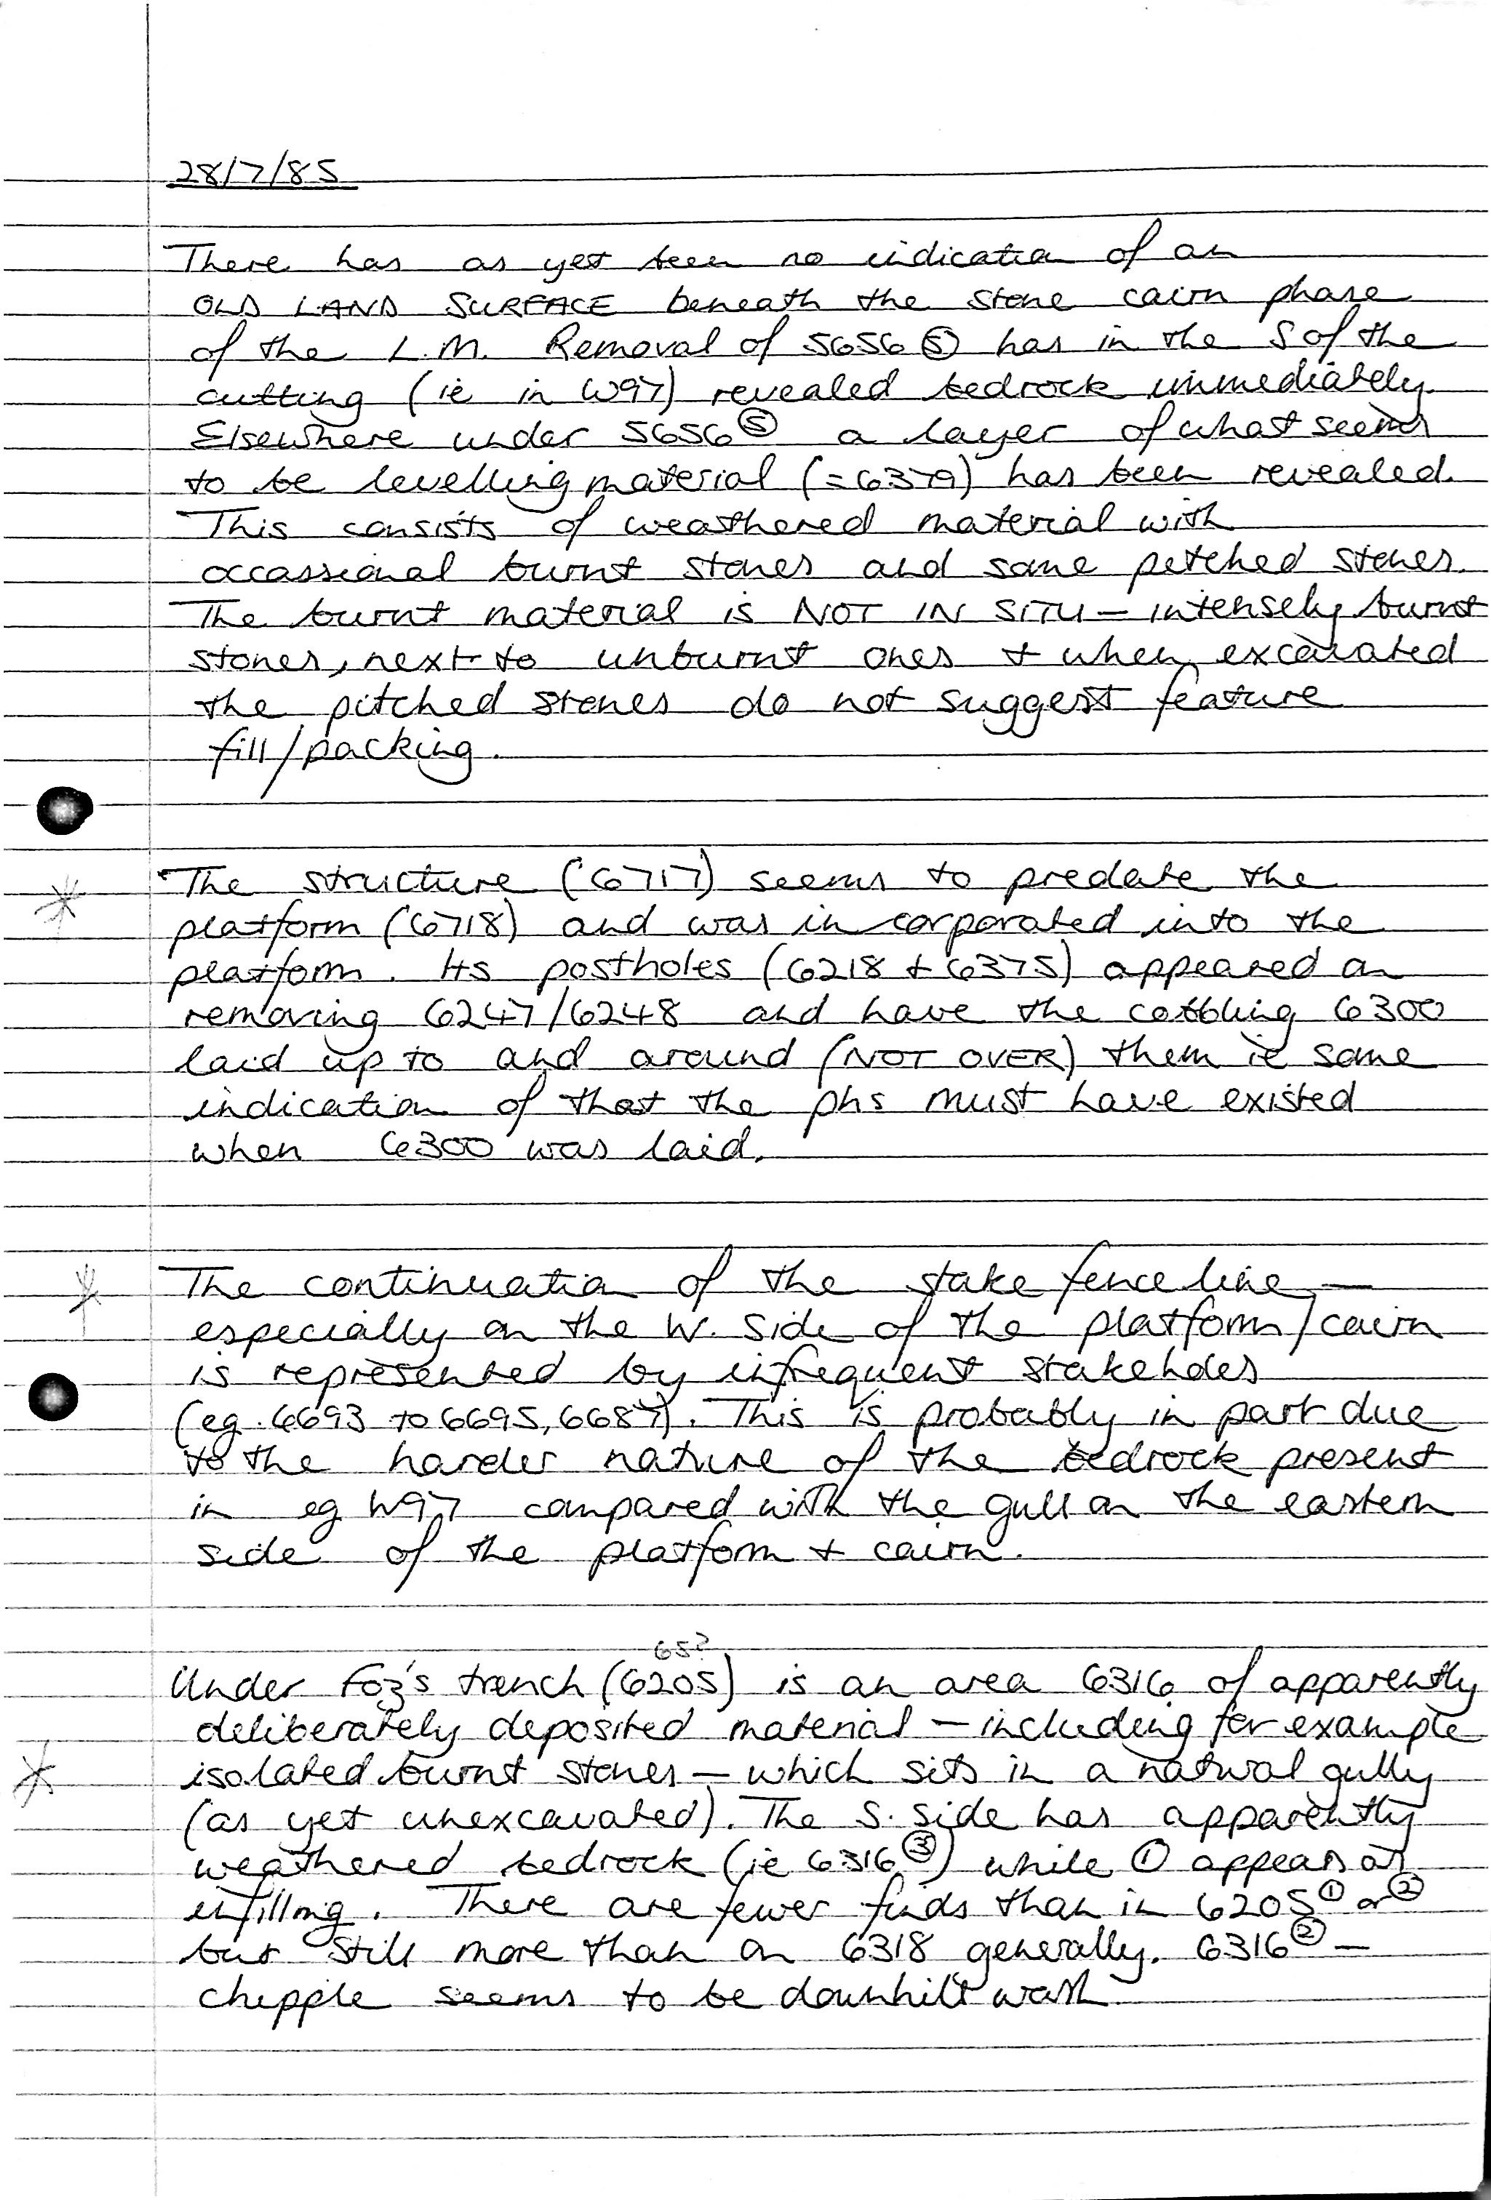 28/7/85
There has as yet been no indication of an
OLD LAND SURFACE beneath the stone cairn phase
of the L.M. Removal of 5656 ⑤ has in the S of the
cutting (ie in W97) revealed bedrock immediately.
Elsewhere under 5656 ⑤ a layer of what seems
to be levelling material (=6379) has been revealed.
This consists of weathered material with
occassional burnt stones and some petched stones.
The burnt material is NOT IN SITU – intensely burnt
stones, next to unburnt ones + when excavated
the pitched stones do not suggest feature
fill/packing.
* The structure (6717) seems to predate the
platform (6718) and was incorporated into the
platform. Its postholes (6218 + 6375) appeared on
removing 6247/6248 and have the cobbling 6300
laid up to and around (NOT OVER) them ie some
indication of that the phs must have existed
when 6300 was laid.
* The continuation of the stake fence line –
especially on the W. Side of the platform/cairn
is represented by infrequent stakeholes
(eg. 6693 to 6695, 6687). This is probably in part due
to the harder nature of the bedrock present
in eg W97 compared with the gull on the eastern
side of the platform + cairn.
65?
Under Foz's trench (6205) is an area 6316 of apparently
deliberately deposited material – including for example
* isolated burnt stones – which sits in a natural gully
(as yet unexcavated). The S. side has apparently
weathered bedrock (ie 6316 ③) while ① appears as
infilling. There are fewer finds than in 6205 ① or ②
but still more than on 6318 generally. 6316 ② –
chipple seems to be downhill wash